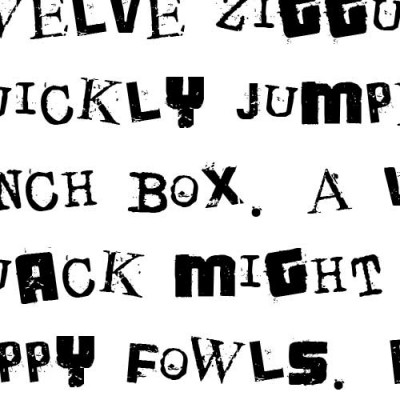 ELVE ZIGGU
UICKLY JUMP
NCH BOX. A
JACK MIGHT
PPY FOWLS.